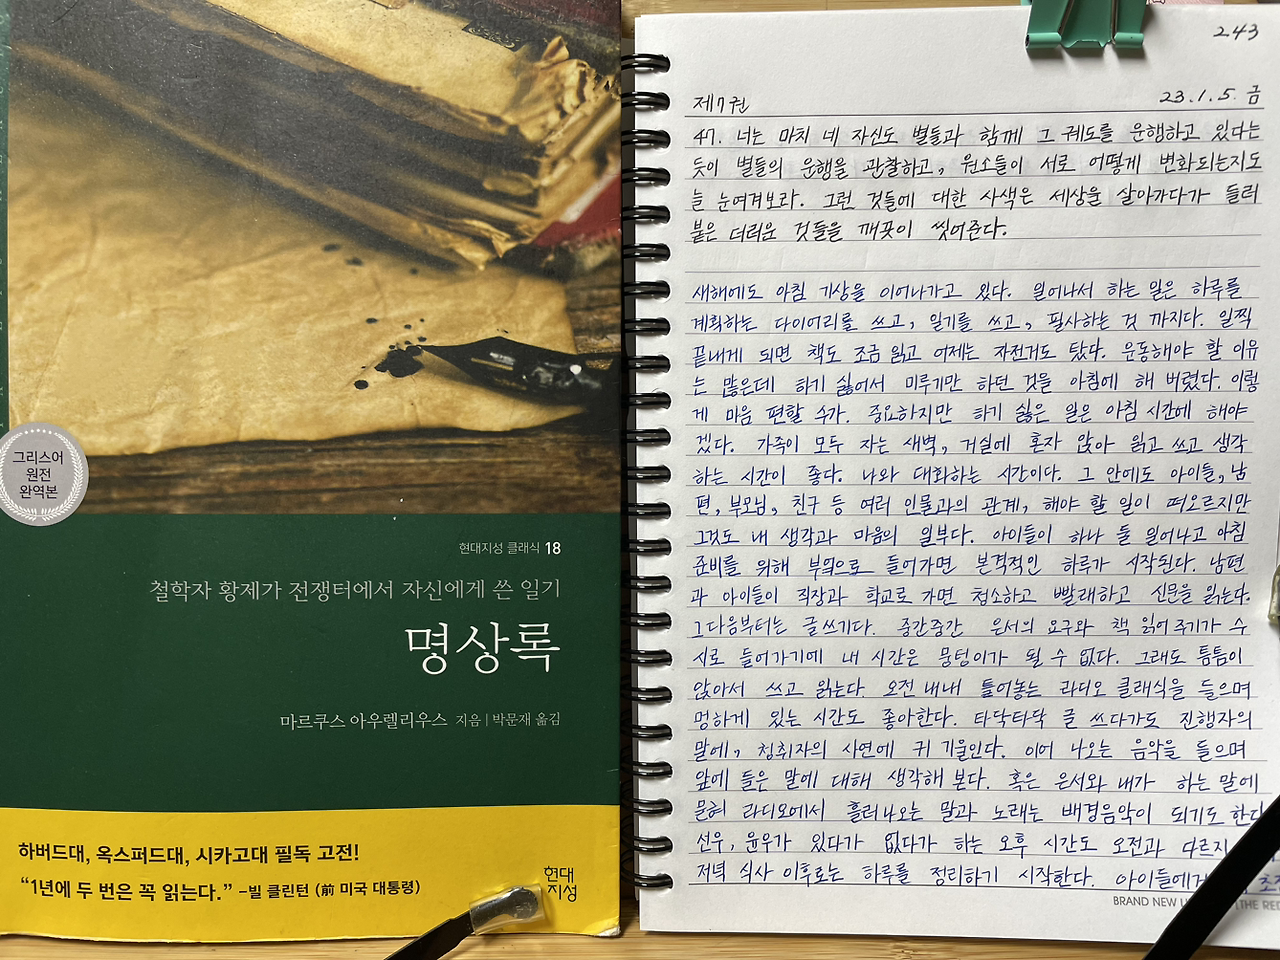 그리스어
원전
완역본
현대지성 클래식 18
철학자 황제가 전쟁터에서 자신에게 쓴 일기
명상록
마르쿠스 아우렐리우스 지음 | 박문재 옮김
하버드대, 옥스퍼드대, 시카고대 필독 고전!
“1년에 두 번은 꼭 읽는다.” –빌 클린턴 (前 미국 대통령)
현대
지성
243
제7권 23.1.5. 금
47. 너는 마치 네 자신도 별들과 함께 그 궤도를 운행하고 있다는
듯이 별들의 운행을 관찰하고, 원소들이 서로 어떻게 변화되는지도
늘 눈여겨보라. 그런 것들에 대한 사색은 세상을 살아가다가 들러
붙은 더러운 것들을 깨끗이 씻어준다.
새해에도 아침 기상을 이어나가고 있다. 일어나서 하는 일은 하루를
계획하는 다이어리를 쓰고, 일기를 쓰고, 필사하는 것 까지다. 일찍
끝내게 되면 책도 조금 읽고 어제는 자전거도 탔다. 운동해야 할 이유
는 많은데 하기 싫어서 미루기만 하던 것을 아침에 해 버렸다. 이렇
게 마음 편할 수가. 중요하지만 하기 싫은 일은 아침 시간에 해야
겠다. 가족이 모두 자는 새벽, 거실에 혼자 앉아 읽고 쓰고 생각
하는 시간이 좋다. 나와 대화하는 시간이다. 그 안에도 아이들, 남
편, 부모님, 친구 등 여러 인물과의 관계, 해야 할 일이 떠오르지만
그것도 내 생각과 마음의 일부다. 아이들이 하나 둘 일어나고 아침
준비를 위해 부엌으로 들어가면 본격적인 하루가 시작된다. 남편
과 아이들이 직장과 학교로 가면 청소하고 빨래하고 신문을 읽는다.
그다음부터는 글쓰기다. 중간중간 은서의 요구와 책 읽어주기가 수
시로 들어가기에 내 시간은 뭉텅이가 될 수 없다. 그래도 틈틈이
앉아서 쓰고 읽는다. 오전 내내 틀어놓는 라디오 클래식을 들으며
멍하게 있는 시간도 좋아한다. 타닥타닥 글 쓰다가도 진행자의
말에, 청취자의 사연에 귀 기울인다. 이어 나오는 음악을 들으며
앞에 들은 말에 대해 생각해 본다. 혹은 은서와 내가 하는 말에
묻혀 라디오에서 흘러나오는 말과 노래는 배경음악이 되기도 한다
선우, 윤우가 있다가 없다가 하는 오후 시간도 오전과 다르지
저녁 식사 이후로는 하루를 정리하기 시작한다. 아이들에게
BRAND NEW